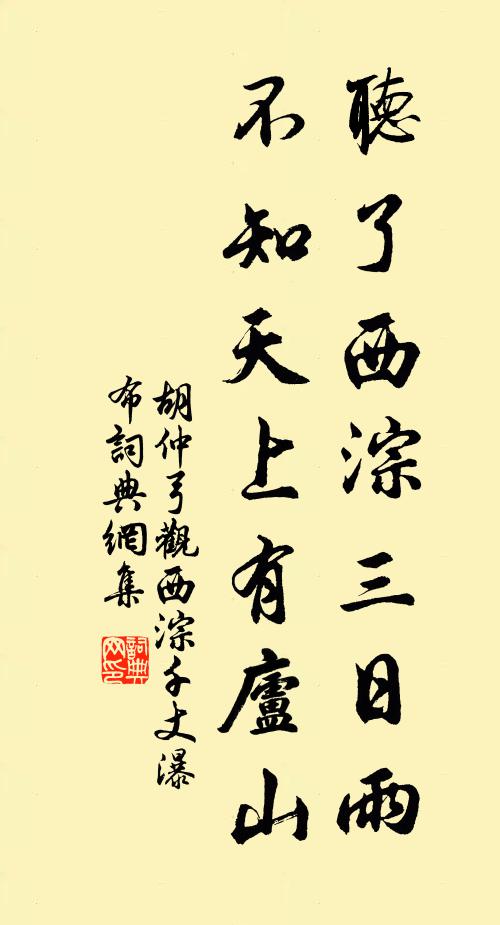 聽了西淙三日雨
不知天上有廬山
胡仲弓觀西淙千丈瀑
布詞典網集
詞典網印